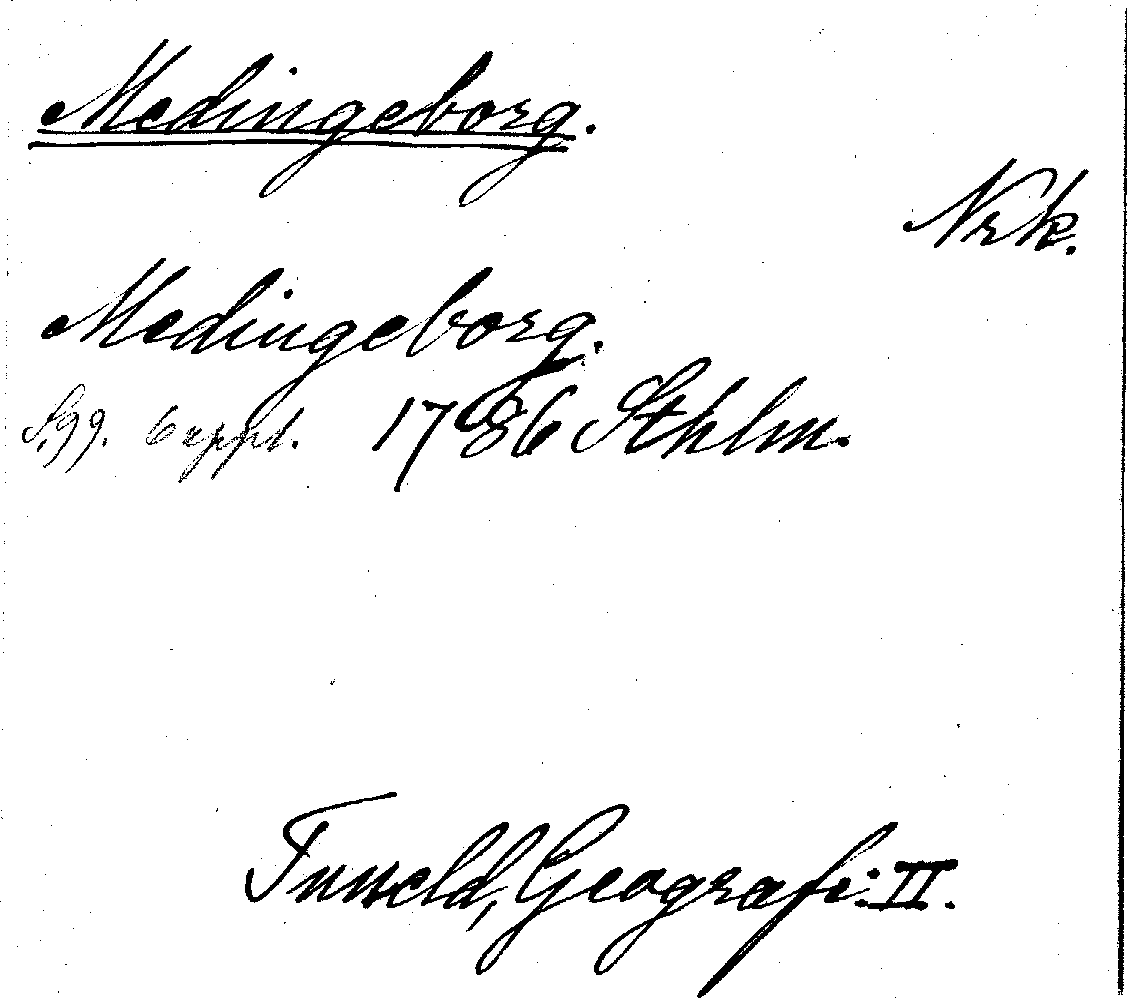 Medingeborg.
Nrk.
Medingeborg.
S. 99. 6 uppl. 1786 Sthlm.
Tuneld, Geografi: II.